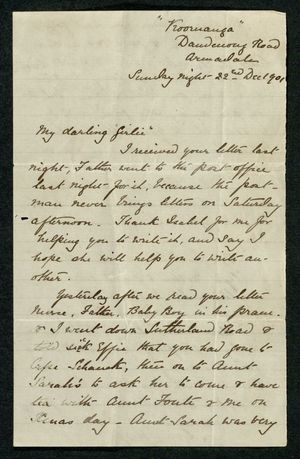 "Koornanga"
Dandenong Road
Armadale
Sunday night - 22nd Dec 190
My darling "Girlie"
I received your letter last
night, Father went to the post office
last night for it, because the post-
man never brings letters on Saturday
afternoon. Thank Isabel for me for
helping you to write it, and say I
hope she will help you to write an-
other.
Yesterday after we read your letter
Nurse, Father, Baby Boy in his pram
& I went down Sutherland Road &
told sick Effie that you had gone to
Cape Schanck, then on to Aunt
Sarah's to ask her to come & have
tea with Aunt & me on
Xmas day - Aunt Sarah was very